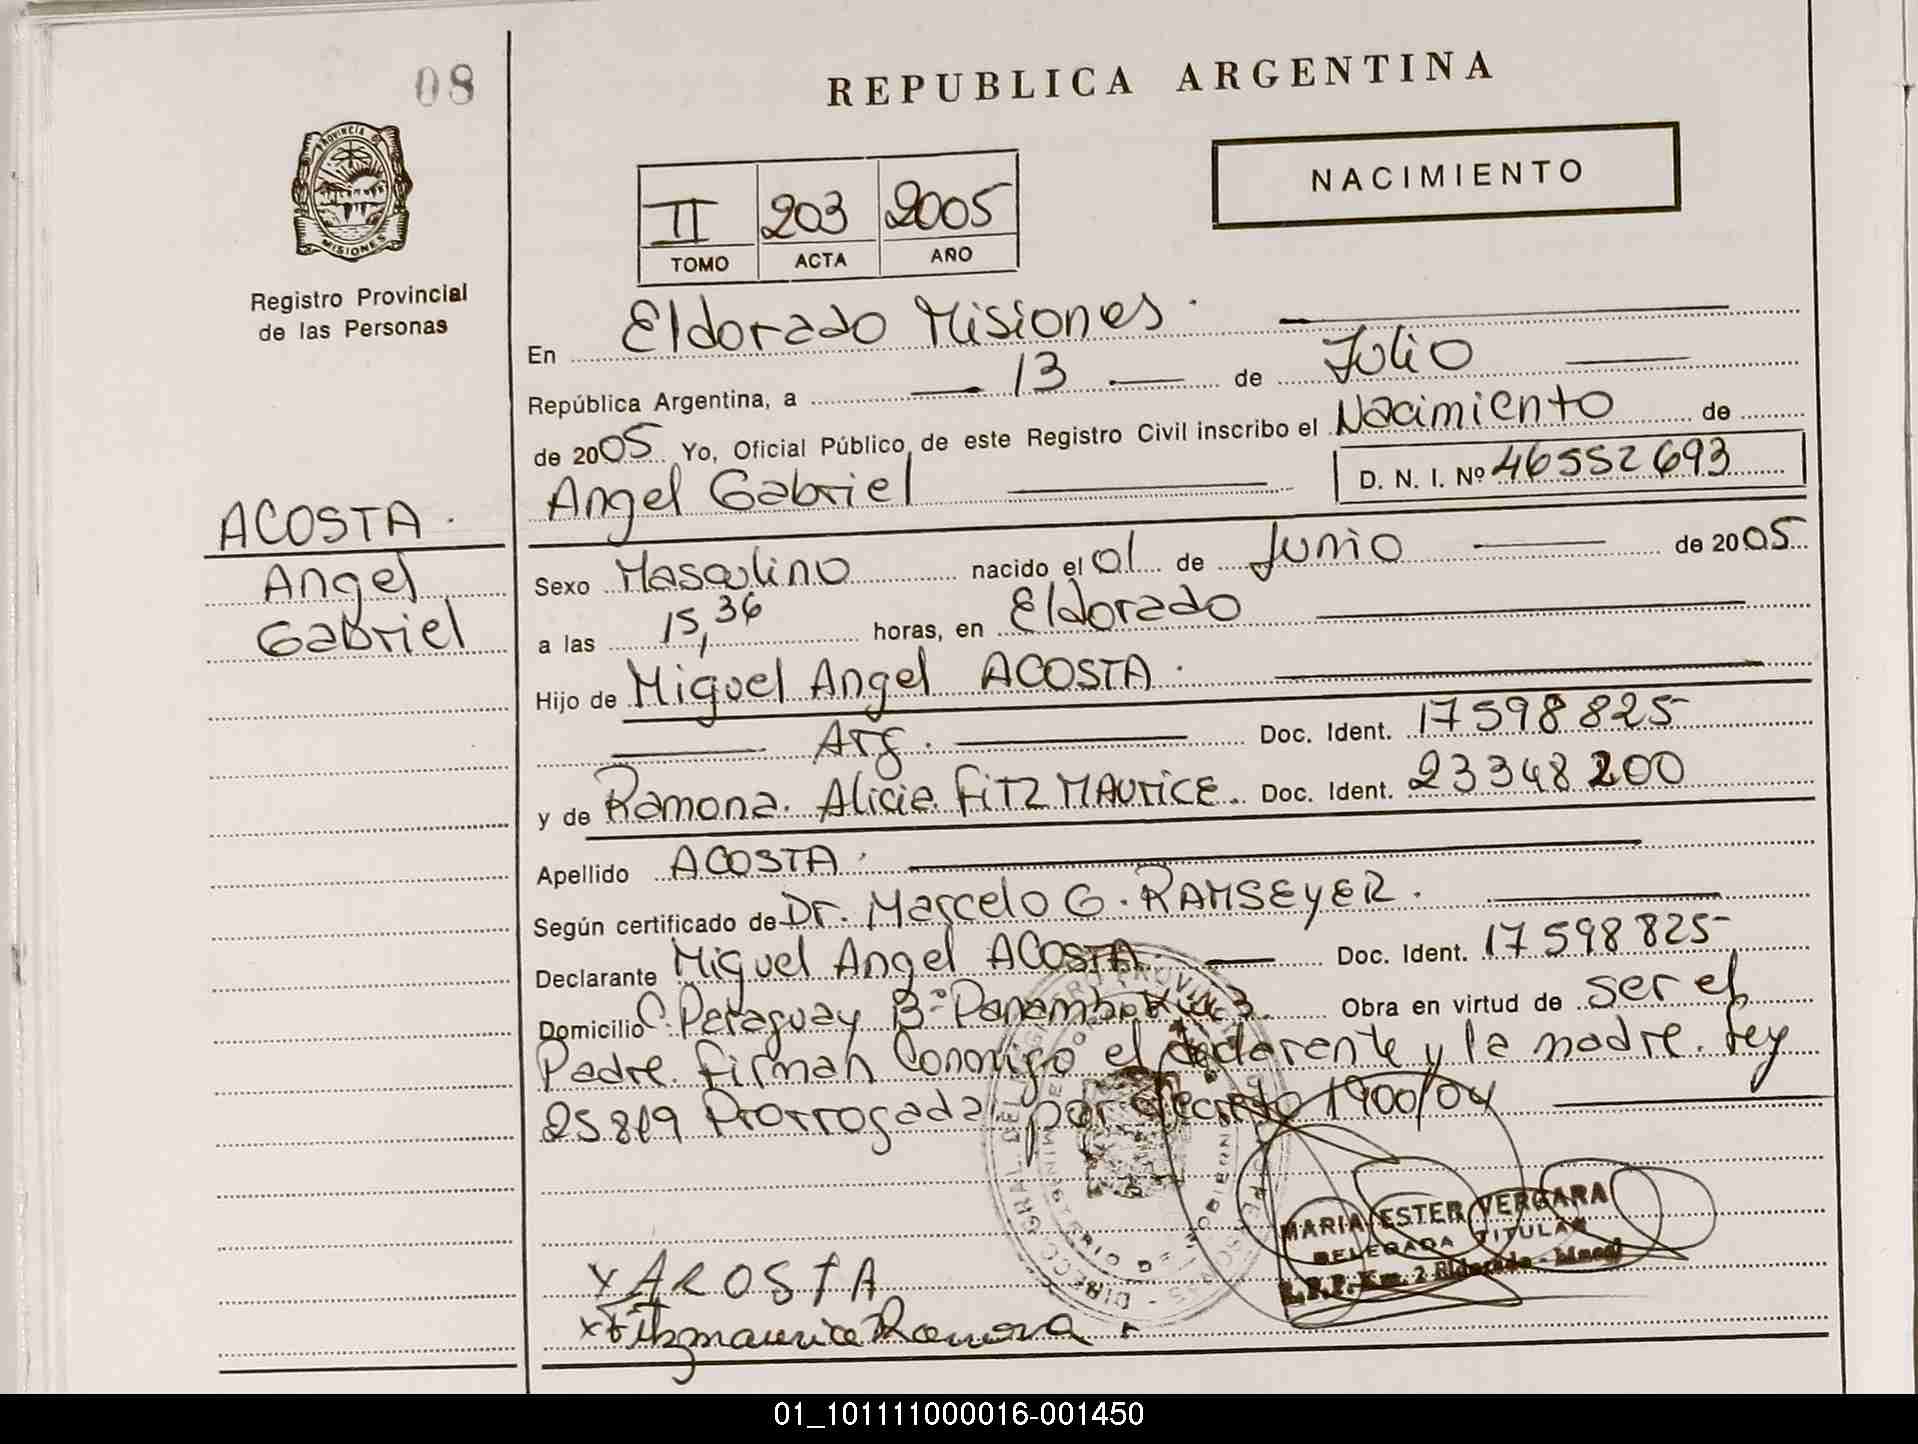 08
REPUBLICA ARGENTINA
PROVINCIA DE
MISIONES
Registro Provincial
de las Personas
II 203 2005
TOMO ACTA AÑO
NACIMIENTO
En Eldorado Misiones.
República Argentina, a 13 de Julio
de 2005 Yo, Oficial Público de este Registro Civil inscribo el Nacimiento de
Angel Gabriel D. N. I. Nº 46552693
ACOSTA.
Angel
Gabriel
Sexo Masculino nacido el 01 de Junio de 2005
a las 15,36 horas, en Eldorado
Hijo de Miguel Angel ACOSTA.
Arg. Doc. Ident. 17598825
y de Ramona. Alicia. FITZ MAURICE. Doc. Ident. 23348200
Apellido ACOSTA.
Según certificado de Dr. Marcelo G. RAMSEYER.
Declarante Miguel Angel ACOSTA. Doc. Ident. 17598825
Domicilio C. Paraguay Bº Panambi Obra en virtud de ser el
Padre. Firman Conmigo el declarente y la madre. Ley
25819 Prorrogada por decreto 1900/04
MARIA ESTER VERGARA
DELEGADA TITULAR
R.P.P. Km. 2 Eldorado - Mnes
x AROSTA
x Fitzmaurice Ramona
01_101111000016-001450